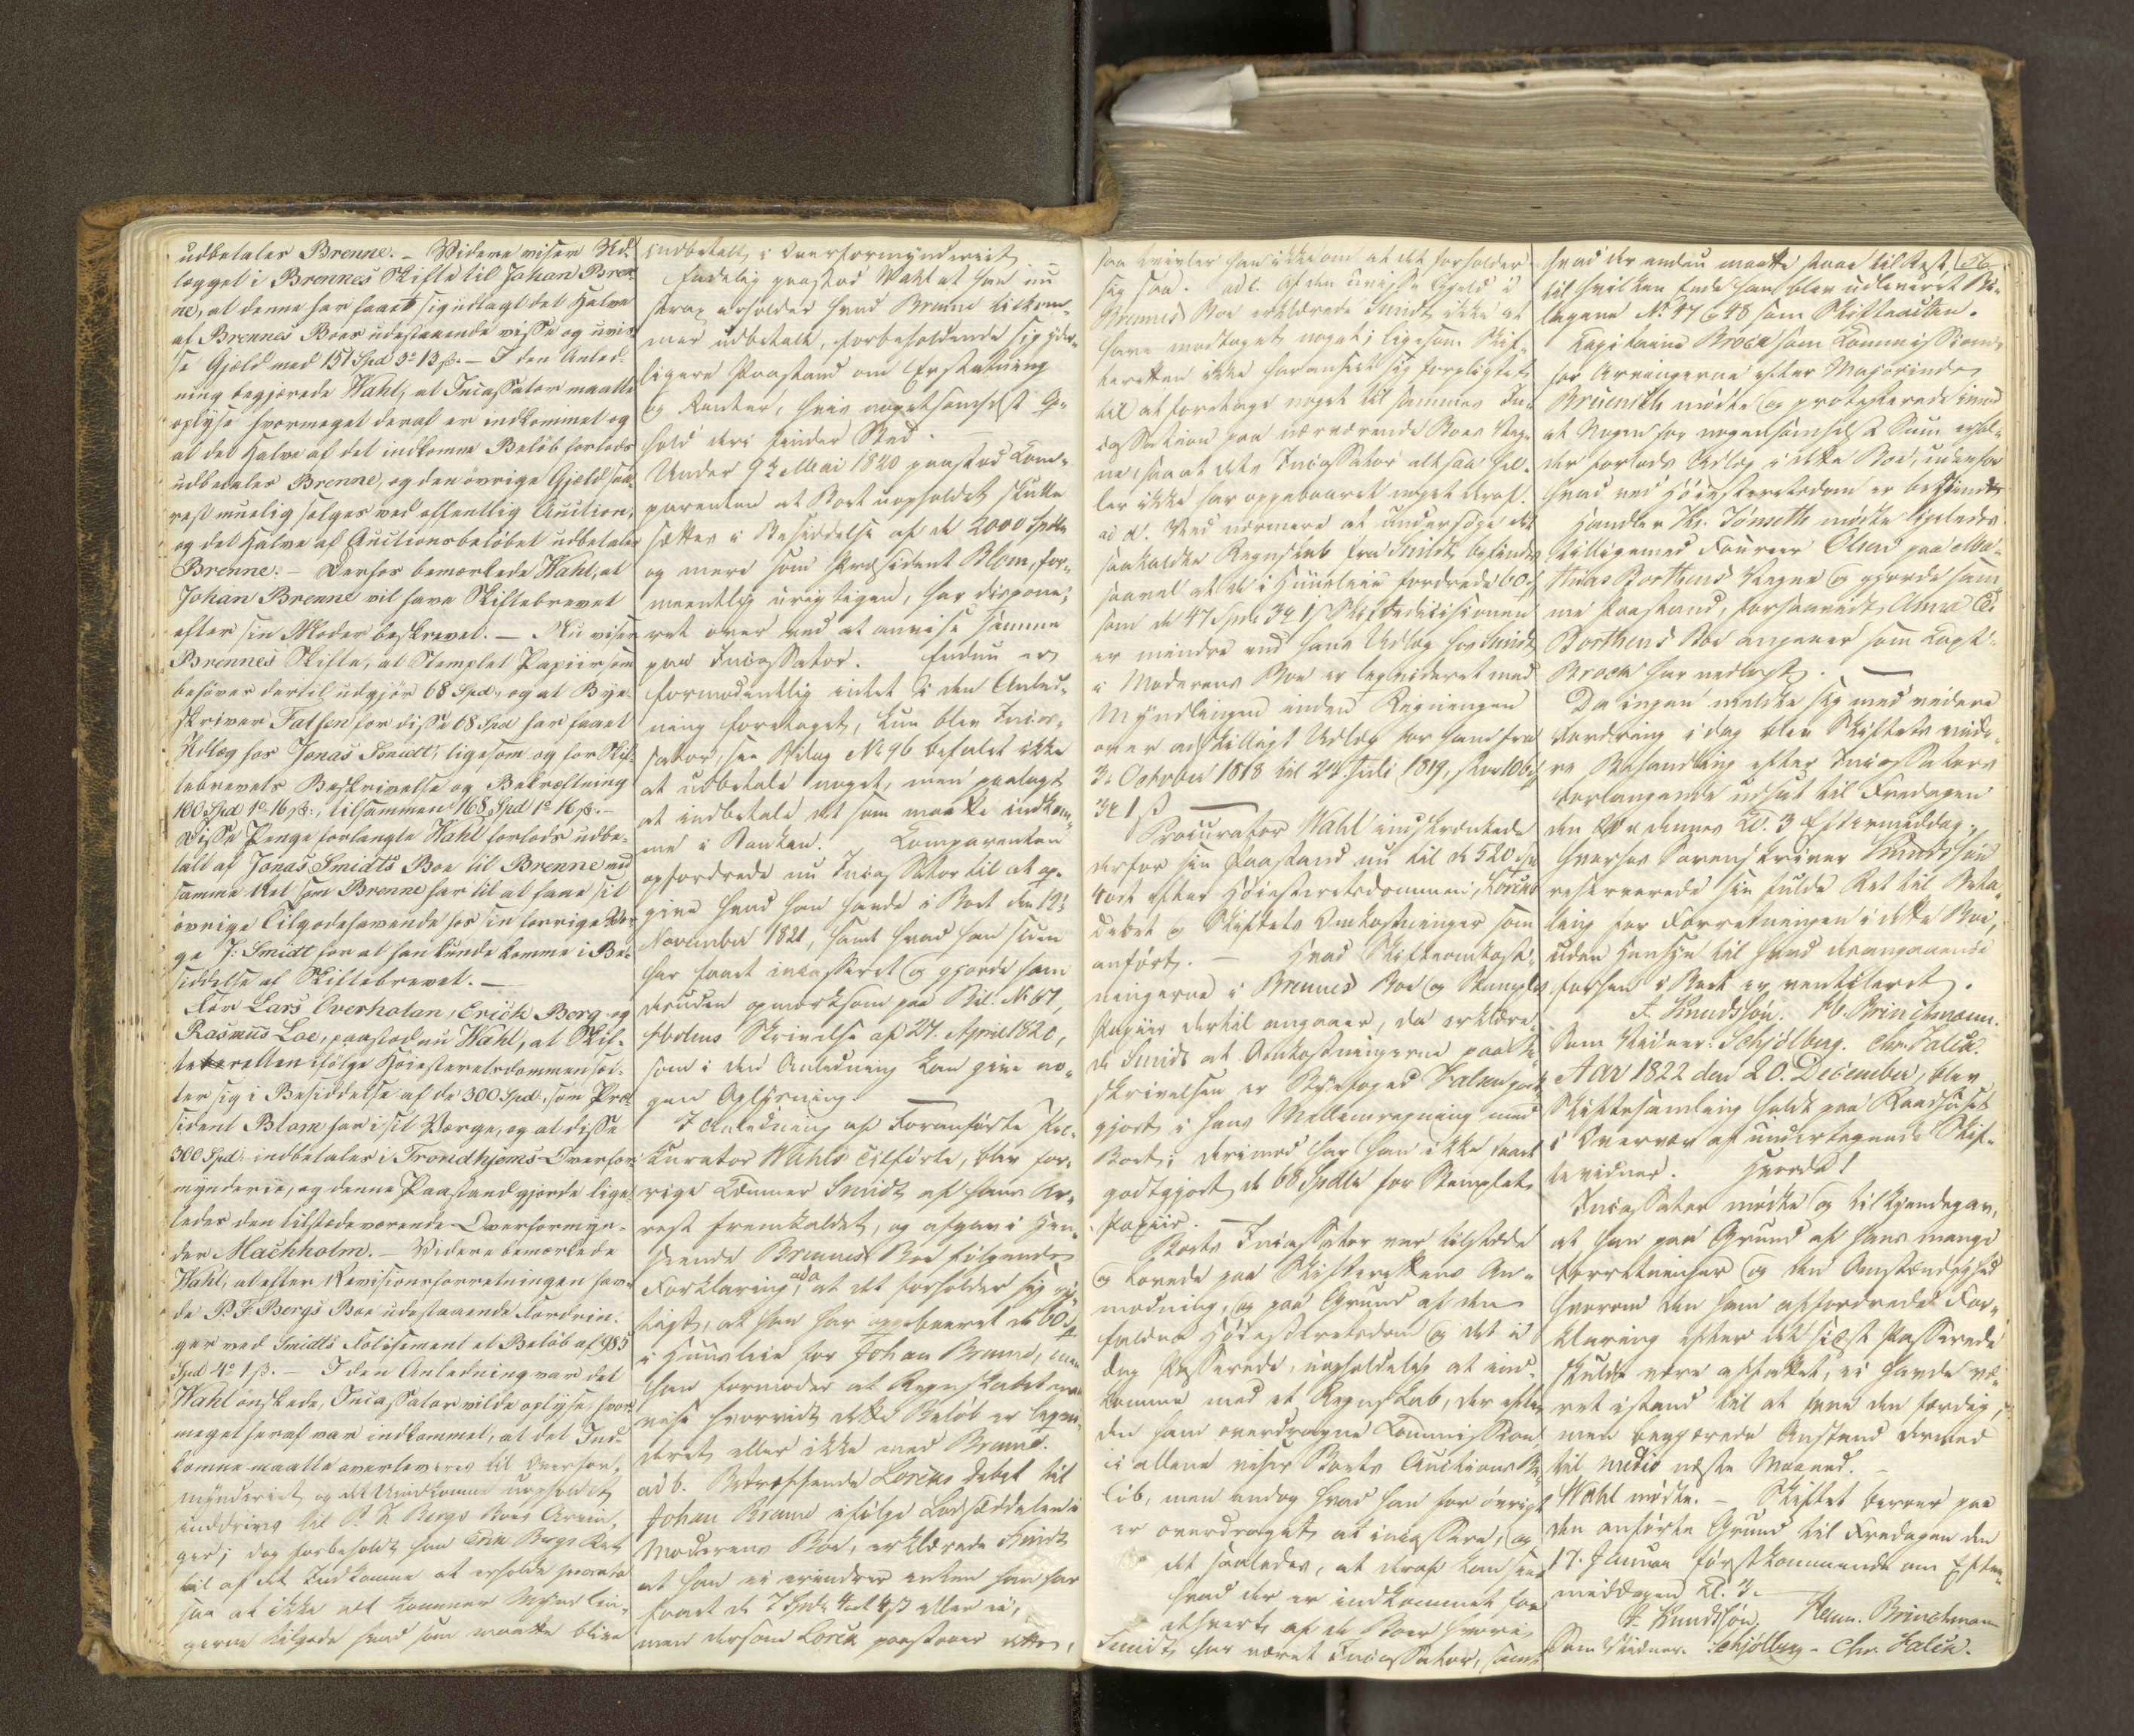 udbetales Brenne. – Videre viser Ud-
lægget i Brennes Skifte til Johan Bren-
ne, at denne har faaet sig udlagt det Halve
af Brennes Boes udestaaende visse og uvis-
se Gjeld med 151 Spd 3 13 ß. – I den Anled-
ning begjærede Wahl, at Incassator maatte
oplyse hvormeget deraf er indkommet og
at det Halve af det indkomne Beløb forlods
udbetales Brenne, og den øvrige Gjeld saa-
rest muelig sælges ved offentlig Auction,
og det Halve af Auctionsbeløbet udbetales
Brenne. – Derhos bemærkede Wahl, at
Johan Brenne vil have Skiftebrevet
efter sin Moder beskrevet. – Nu viser
Brennes Skifte, at Stemplet Papiir som
behøves dertil udgjør 68 Spd, og at Bye-
skriver Falsen for disse 68 Spd har faaet
Udlæg hos Jonas Smidt, ligesom og for Skif-
tebrevets Beskrivelse og Bekræftning
100 Spd 1 16 ß, tilsammen 168 Spd 1 16 ß. –
Disse Penge forlangte Wahl forlods udbe-
talt af Jonas Smidts Boe til Brenne med
samme Ret som Brenne har til at faae sit
øvrige Tilgodehavende hos sin forrige Vær-
ge J: Smidt for at han kunde komme i Be-
siddelse af Skiftebrevet. –
For Lars Overholan, Erich Berg og
Rasmus Loe, paastod nu Wahl, at Skif-
teretten ifølge Høiesteretsdommen sæt-
ter sig i Besiddelse af de 300 Spd, som Præ-
sident Blom har i sit Værge, og at disse
300 Spd indbetales i Trondhjems Overfor-
mynderie, og denne Paastand gjorde lige-
ledes den tilstedeværende Overformyn-
der Machholm. – Videre bemærkede
Wahl, at efter Revisionsforretningen hav-
de P. F. Bergs Boe udestaaende Fordrin-
ger ved Smidts Folissement et Beløb af 985
Spd 4 1 ß. – I den Anledning var det
Wahl ønskede, Incassator vilde oplyse, hvor-
meget heraf var indkommet, at det Ind-
komne maatte overleveres til Overfor-
mynderiet og det Uindkomne uopholdet
inddrives til P. F. Bergs Boes Arvin-
ger; dog forbeholdt han Erik Bergs Ret
til af det Indkomne at erholde prorata
saa at ikke alt kommer Myndlin-
gerne tilgode hvad som maatte blive
indbetalt i Overformynderiet
Endelig paastod Wahl at han nu
strax erholder hvad Brenne tilkom-
mer udbetalt, forbeholdende sig yder-
ligere Paastand om Erstatning
og Renter, hvis nogetsomhelst Op-
hold deri finder Sted. –
Under 9de Mai 1820 paastod Com-
parenten at Boet uopholdet skulle
sættes i Besiddelse af de 2000 Spdlr
og mere som Præsident Blom, for-
meentlig urigtigen, har dispone-
ret over ved at anvise samme
paa Incassator. Endnu er
formodentlig intet i den Anled-
ning foretaget, kun blev Incas-
sator, see Bilag No 96 befalet ikke
at udbetale noget, men paalagt
at indbetale det som maatte indkom-
me i Banken. Comparenten
opfordrede nu Incassator til at op-
give hvad han havde i Boet den 12te
November 1821, samt hvad han siden
har faaet incasseret og gjorde ham
desuden opmærksom paa Bil. No 67,
Skrivelse af 27. April 1820,
som i den Anledning kan give no-
gen Oplysning. –
I Anledning af Foranførte Pro-
curator Wahls Tilførte, blev for-
rige Commer Smidt af hans Ar-
rest fremkaldet, og afgav i Hen-
seende Brennes Boe følgende
Forklaring ad a. at det forholder sig rig-
tigt, at han har oppebaaret de 60 Sp
i Huusleie for Johan Brenne, men
han formoder at Regnskabet maa
vise hvorvidt dette Beløb er beregn-
deret eller ikke med Brenne.
ad b. Betræffende Lorcks Debet til
Johan Brenne ifølge Lodseddelen i
Moderens Boe, erklærede Smidt
at han ei erindrer enten han har
faaet de 7 Spd 4 ort 4 ß eller ei,
men dersom Lorck paastaaer dette,
saa tvivler han ikke om at det forholder
sig saa. ad c. Af den uvisse Gjeld i
Brennes Boe erklærede Smidt ikke at
have modtaget noget; ligesom Skif-
teretten ikke har anseet sig forpligtet
til at foretage noget til sammes In-
cassation paa nærværende Boes Veg-
ne, saa at dets Incassator altsaa hel-
ler ikke har oppebaaret noget deraf.
ad d. Ved nærmere at undersøge det
saakaldte Regnskab fra Smidt befindes
saavel at de i Huusleie fordrede 60 Sp
som de 47 Spd 3 1 ß Skiftedecisionen
er mindre end hans Udlæg hos Smidt
i Moderens Boe er liqvideret med
Myndlingen inden Regningen
over adskilligt Udlæg for ham fra
3. October 1818 til 24 Juli 1819, stor 106 Sp
3 1 ß
Procurator Wahl indskrænkede
derfor sin Paastand nu til de 520 Sp
4 ort efter Høiesteretsdommen, Lorcks
Debet og Skiftets Omkostninger som
anført. – Hvad Skifteomkost-
ningerne i Brennes Boe og Stemplet
Papiir dertil angaaer, da erklære-
de Smidt at Omkostningerne paa Be-
skrivelsen er Byefoged Falsen godt-
gjort i hans Mellemregning med
Boet; derimod har han ikke faaet
godtgjort de 68 Spdlr for Stemplet
Papiir. –
Boets Incassator var tilstede
og lovede paa Skifterettens An-
modning, og paa Grund af den
faldne Høiesteretsdom og det i
dag Passerede, uopholdelig at ind-
komme med et Regnskab, der efter
den ham overdragne Commission,
ei allene viser Boets Auctions Be-
løb, men endog hvad han for øvrigt
er overdraget at incassere, og
det saaledes, at deraf kan sees
hvad der er indkommet for
ethvert af de Boer hvori
Smidt har været Incassator, samt
hvad der endnu maatte staae til Rest, 56
til hvilken Ende ham blev udleveret Bi-
lagene No 47 & 48 som Skifteacten.
Capitaine Brock som Commissionair
for Arvingerne efter Majorinde
Bruenith mødte og protesterede imod
at Nogen for nogensomhelst Sum erhol-
der forlods Udlæg i dette Boe, udenfor
hvad ved Høiesteretsdom er bestemt
Handler Hr. Jønseth mødte ligeledes
tilligemed Foureer Olsen paa Ma-
thias Borthens Vegne og gjorde sam-
me Paastand, forsaavidt Anna C:
Borthens Boe angaaer som Capt.
Brock har nedlagt. –
Da ingen meldte sig med videre
Fordring i dag blev Skiftets vide-
re Behandling efter Incassators
Forlangende udsat til Fredagen
den 20de dennes Kl. 3 Eftermiddag.,
hvorhos Sorenskriver Knudssøn
reserverede sin fulde Ret til Beta-
ling for Forretningen i dette Boe,
uden Hensyn til hvad desangaaende
forhen i Boet er ventileret.
F. Knudssøn. H. Brinchmann.
Som Vidner: Schjølberg. Chr. Falck.
Aar 1822 den 20. December, blev
Skiftesamling holdt paa Raadhuset
i Overvær af undertegnede Skif-
tevidner. Hvorda!
Incassator mødte og tilkjendegav,
at han paa Grund af hans mange
Forretninger og den Omstændighed
hvorom den ham affordrede For-
klaring efter det sidst Passerede
skulde være affattet, ei havde væ-
ret istand til at have den færdig,
men begjærede Anstand dermed
til medio næste Maaned. –
Wahl mødte. – Skiftet beroer paa
den anførte Grund til Fredagen den
17. Januar førstkommende om Efter-
middagen Kl. 3. –
F. Knudssøn. Henn. Brinchmann
Som Vidner. Schjølberg – Chr. Falck.